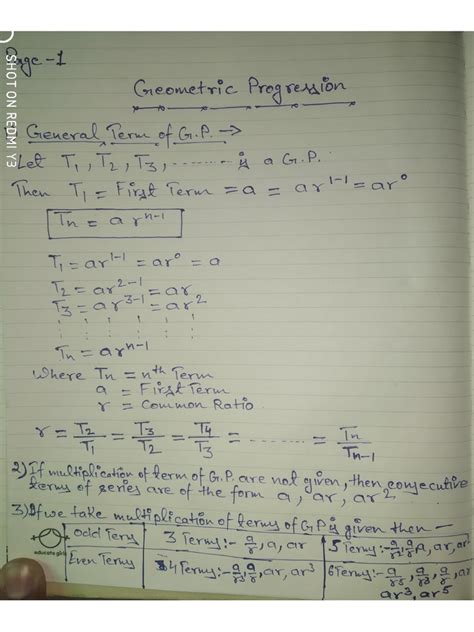 Page-1
SHOT ON REDMI Y3
Geometric Progression
General Term of G.P. →
Let T₁, T₂, T₃, ........ is a G.P.
Then T₁ = First Term = a = ar¹⁻¹ = ar⁰
Tn = a rⁿ⁻¹
T₁ = ar¹⁻¹ = ar⁰ = a
T₂ = ar²⁻¹ = ar
T₃ = ar³⁻¹ = ar²
Tn = arⁿ⁻¹
where Tn = nth Term
a = First Term
r = Common Ratio
r = T₂/T₁ = T₃/T₂ = T₄/T₃ = ........ = Tn/Tn-1
2) If multiplication of term of G.P. are not given, then consecutive
terms of series are of the form a, ar, ar²
3) If we take multiplication of terms of G.P. is given then —
Odd Terms 3 Terms:- a/r, a, ar 5 Terms:- a/r², a/r, a, ar, ar²
educate girls
Even Terms 4 Terms:- a/r³, a/r, ar, ar³ 6 Terms:- a/r⁵, a/r³, a/r, ar
ar³, ar⁵